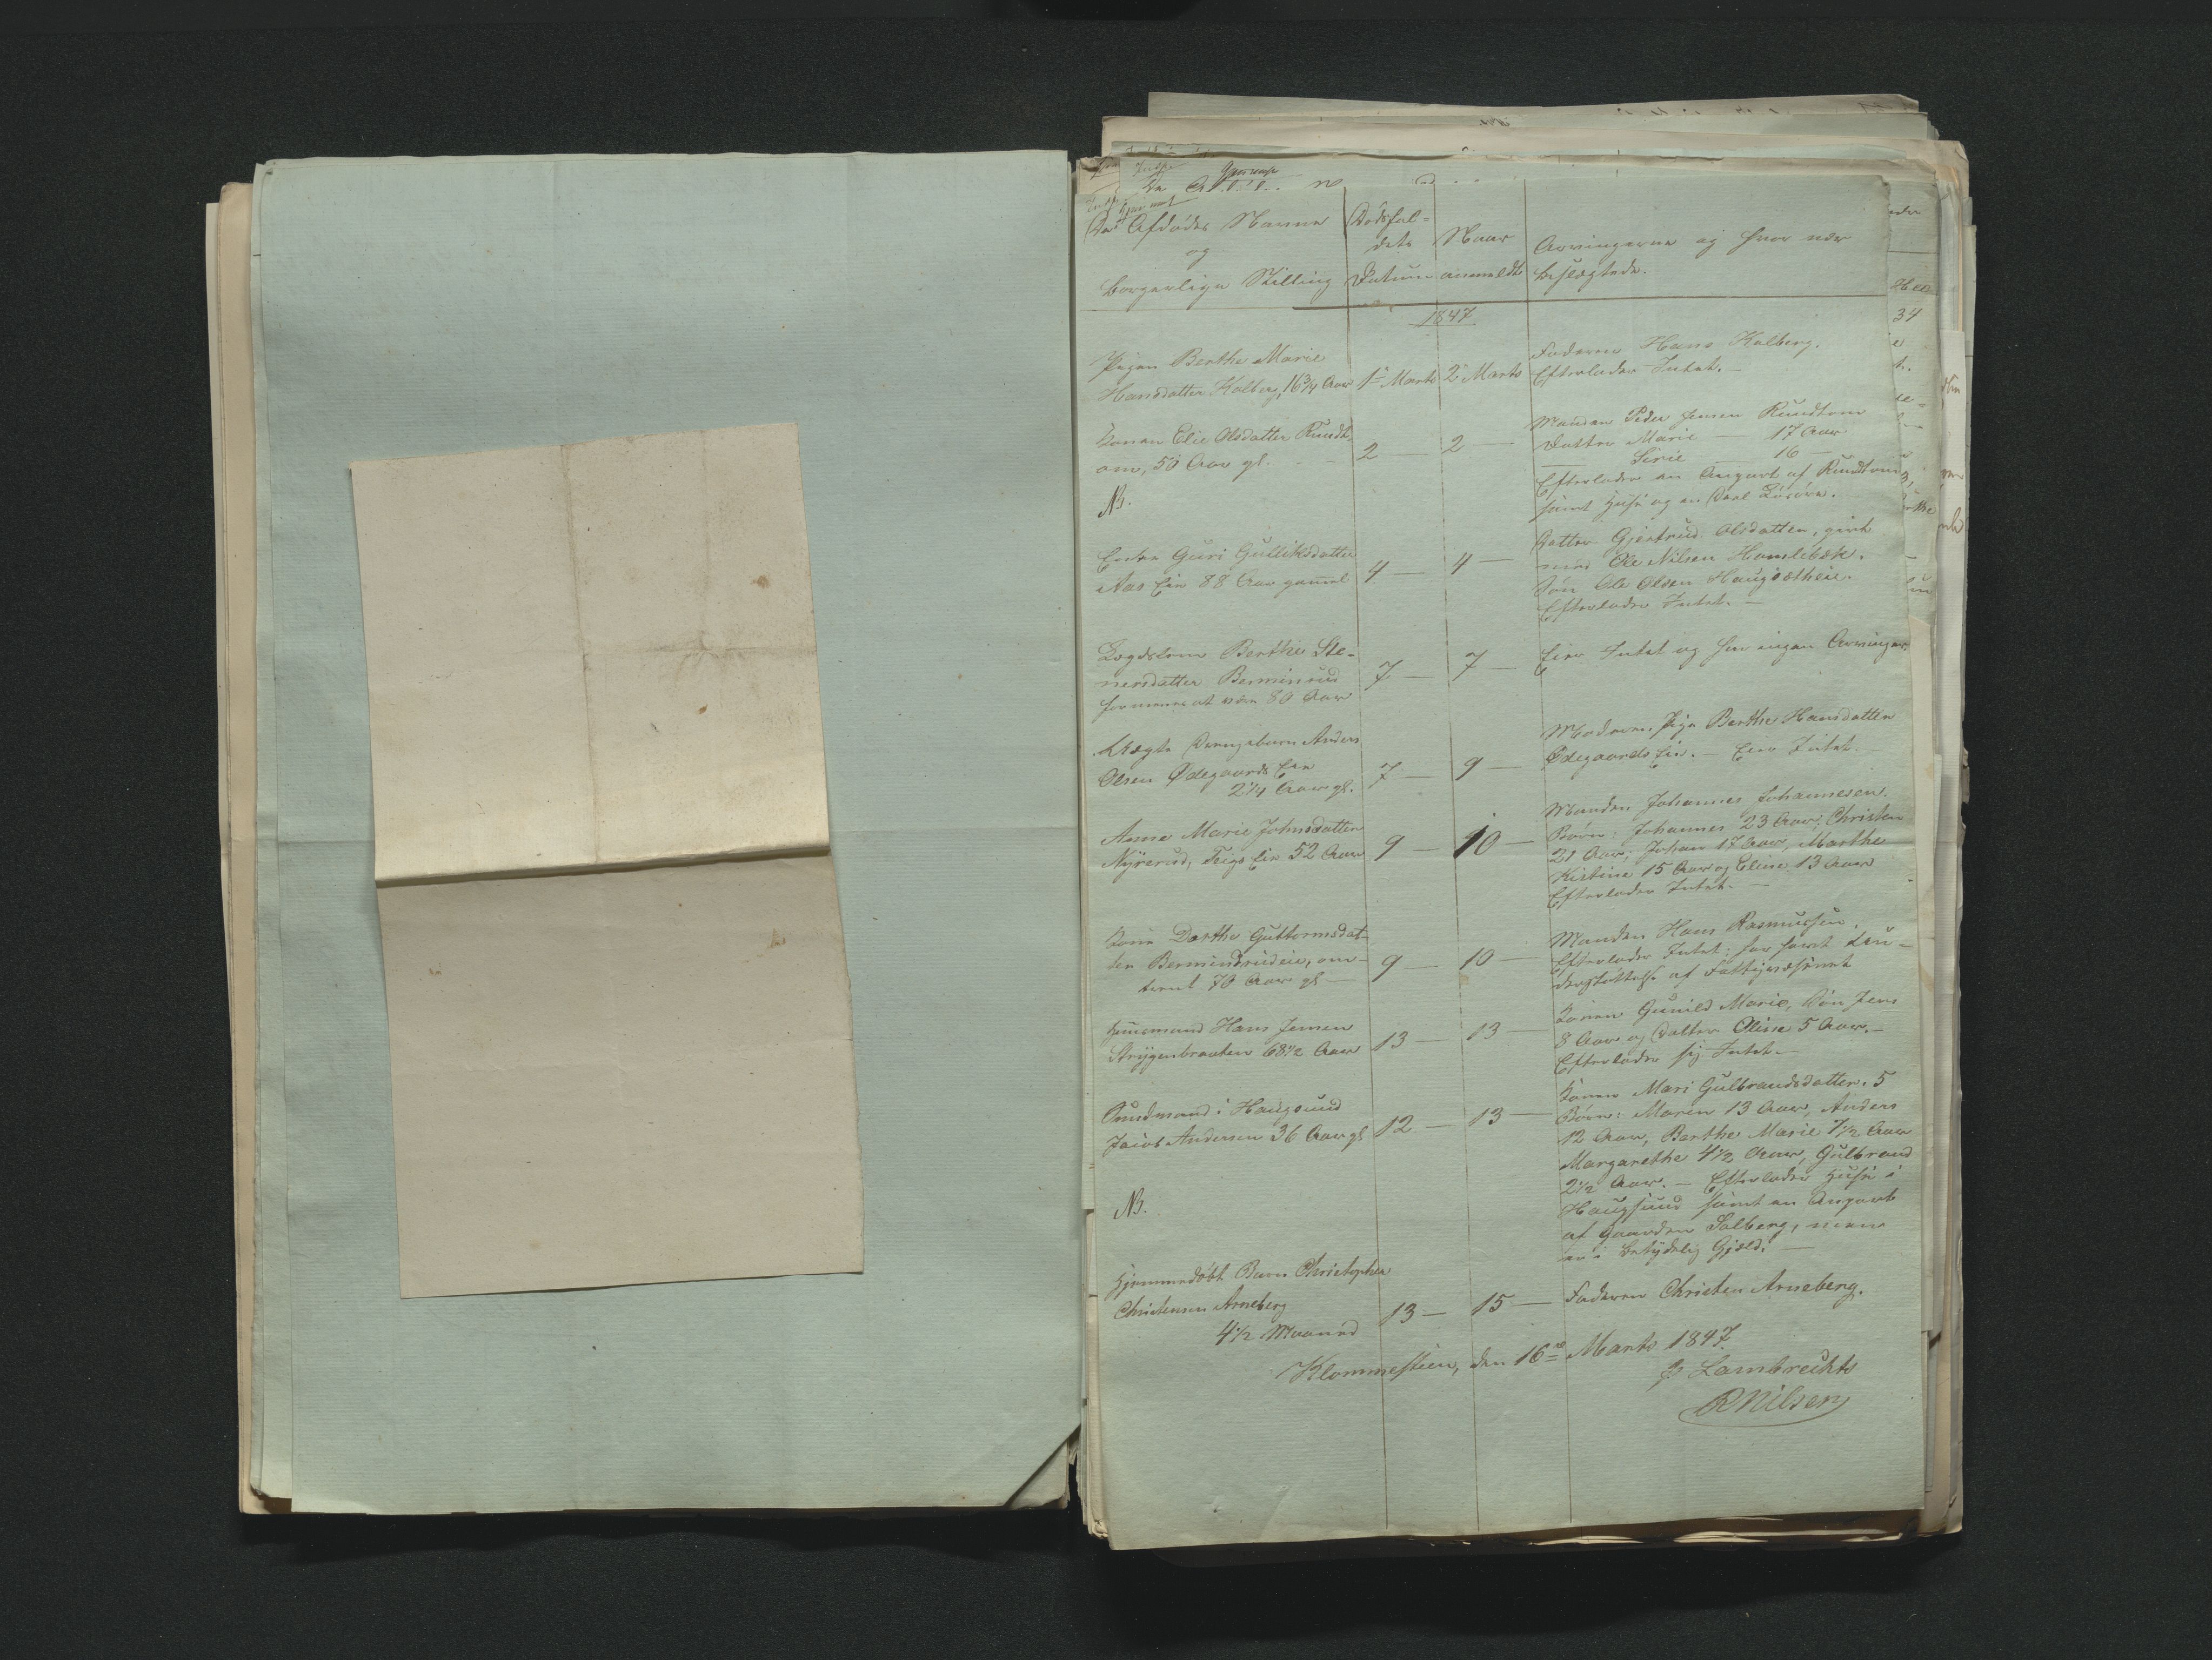 De Afdødes Navne
og
borgerlige Stilling
Dødsfal-
dets
Datum
Naar
anmeldt
Arvingerne og hvor nær
beslægtede.
1847
Pigen Berthe Marie
Hansdatter Holberg, 16 3/4 Aar
1ste Marts
2 Marts
Faderen Hans Holberg.
Efterlader Intet. —
Konen Elie Olsdatter Rundt,
om, 50 Aar gl.
NB.
2 —
2 —
Manden Peder Jensen Rundtom
Datter Marie — 17 Aar
— Sirie — 16 —
Efterlader en Anpart af Rundtom
samt Huse og en Deel Løsøre.
Enke Guri Gulliksdatter
Aas Eie 88 Aar gammel
4 —
4 —
Datter Gjertrud Olsdatter, givt
med Ole Nilsen Hamlebæk.
Søn Ole Olsen Haugsætheie.
Efterlader Intet. —
Lægdslem Berthe Ste-
nersdatter Berminrud
formenes at være 80 Aar
7 —
7 —
Eier Intet og har ingen Arvinger.
Uægte Drengebarn Anders
Olsen Ødegaards Eie
2 1/4 Aar gl.
7 —
9 —
Moderen, Pige Berthe Hansdatter
Ødegaards Eie. — Eier Intet.
Anne Marie Johnsdatter
Nyrerud, Teigs Eie 52 Aar
9 —
10 —
Manden Johannes Johannesen.
Børn: Johannes 23 Aar, Christen
21 Aar, Johan 17 Aar, Marthe
Kistine 15 Aar og Eline 13 Aar
Efterlader Intet. —
Kone Dorthe Guttormsdat-
ter Berminrudeie, om-
trent 70 Aar gl —
9 —
10 —
Manden Hans Rasmussen.
Efterlader Intet; har havt Un-
derstøttelse af Fattigvæsenet
Huusmand Hans Jensen
Strygenbraaten 68 1/2 Aar
13 —
13 —
Konen Gunild Marie, Søn Jens
8 Aar og Datter Oline 5 Aar. —
Efterlader sig Intet. —
Sundmand i Haugsund
Jacob Andersen 36 Aar gl
NB.
12 —
13 —
Konen Mari Gulbrandsdatter. 5
Børn: Maren 13 Aar, Anders
12 Aar, Berthe Marie 7 1/2 Aar
Margarethe 4 1/2 Aar, Gulbrand
2 1/2 Aar. — Efterlader Huse i
Haugsund samt en Anpart
af Gaarden Solberg, men
er i betydelig Gjæld. —
Hjemmedøbt Barn Christopher
Christensen Arneberg
4 1/2 Maaned
13 —
15 —
Faderen Christen Arneberg.
Klommesteen, den 16de Marts 1847.
p Lambrechts
R Nilsen